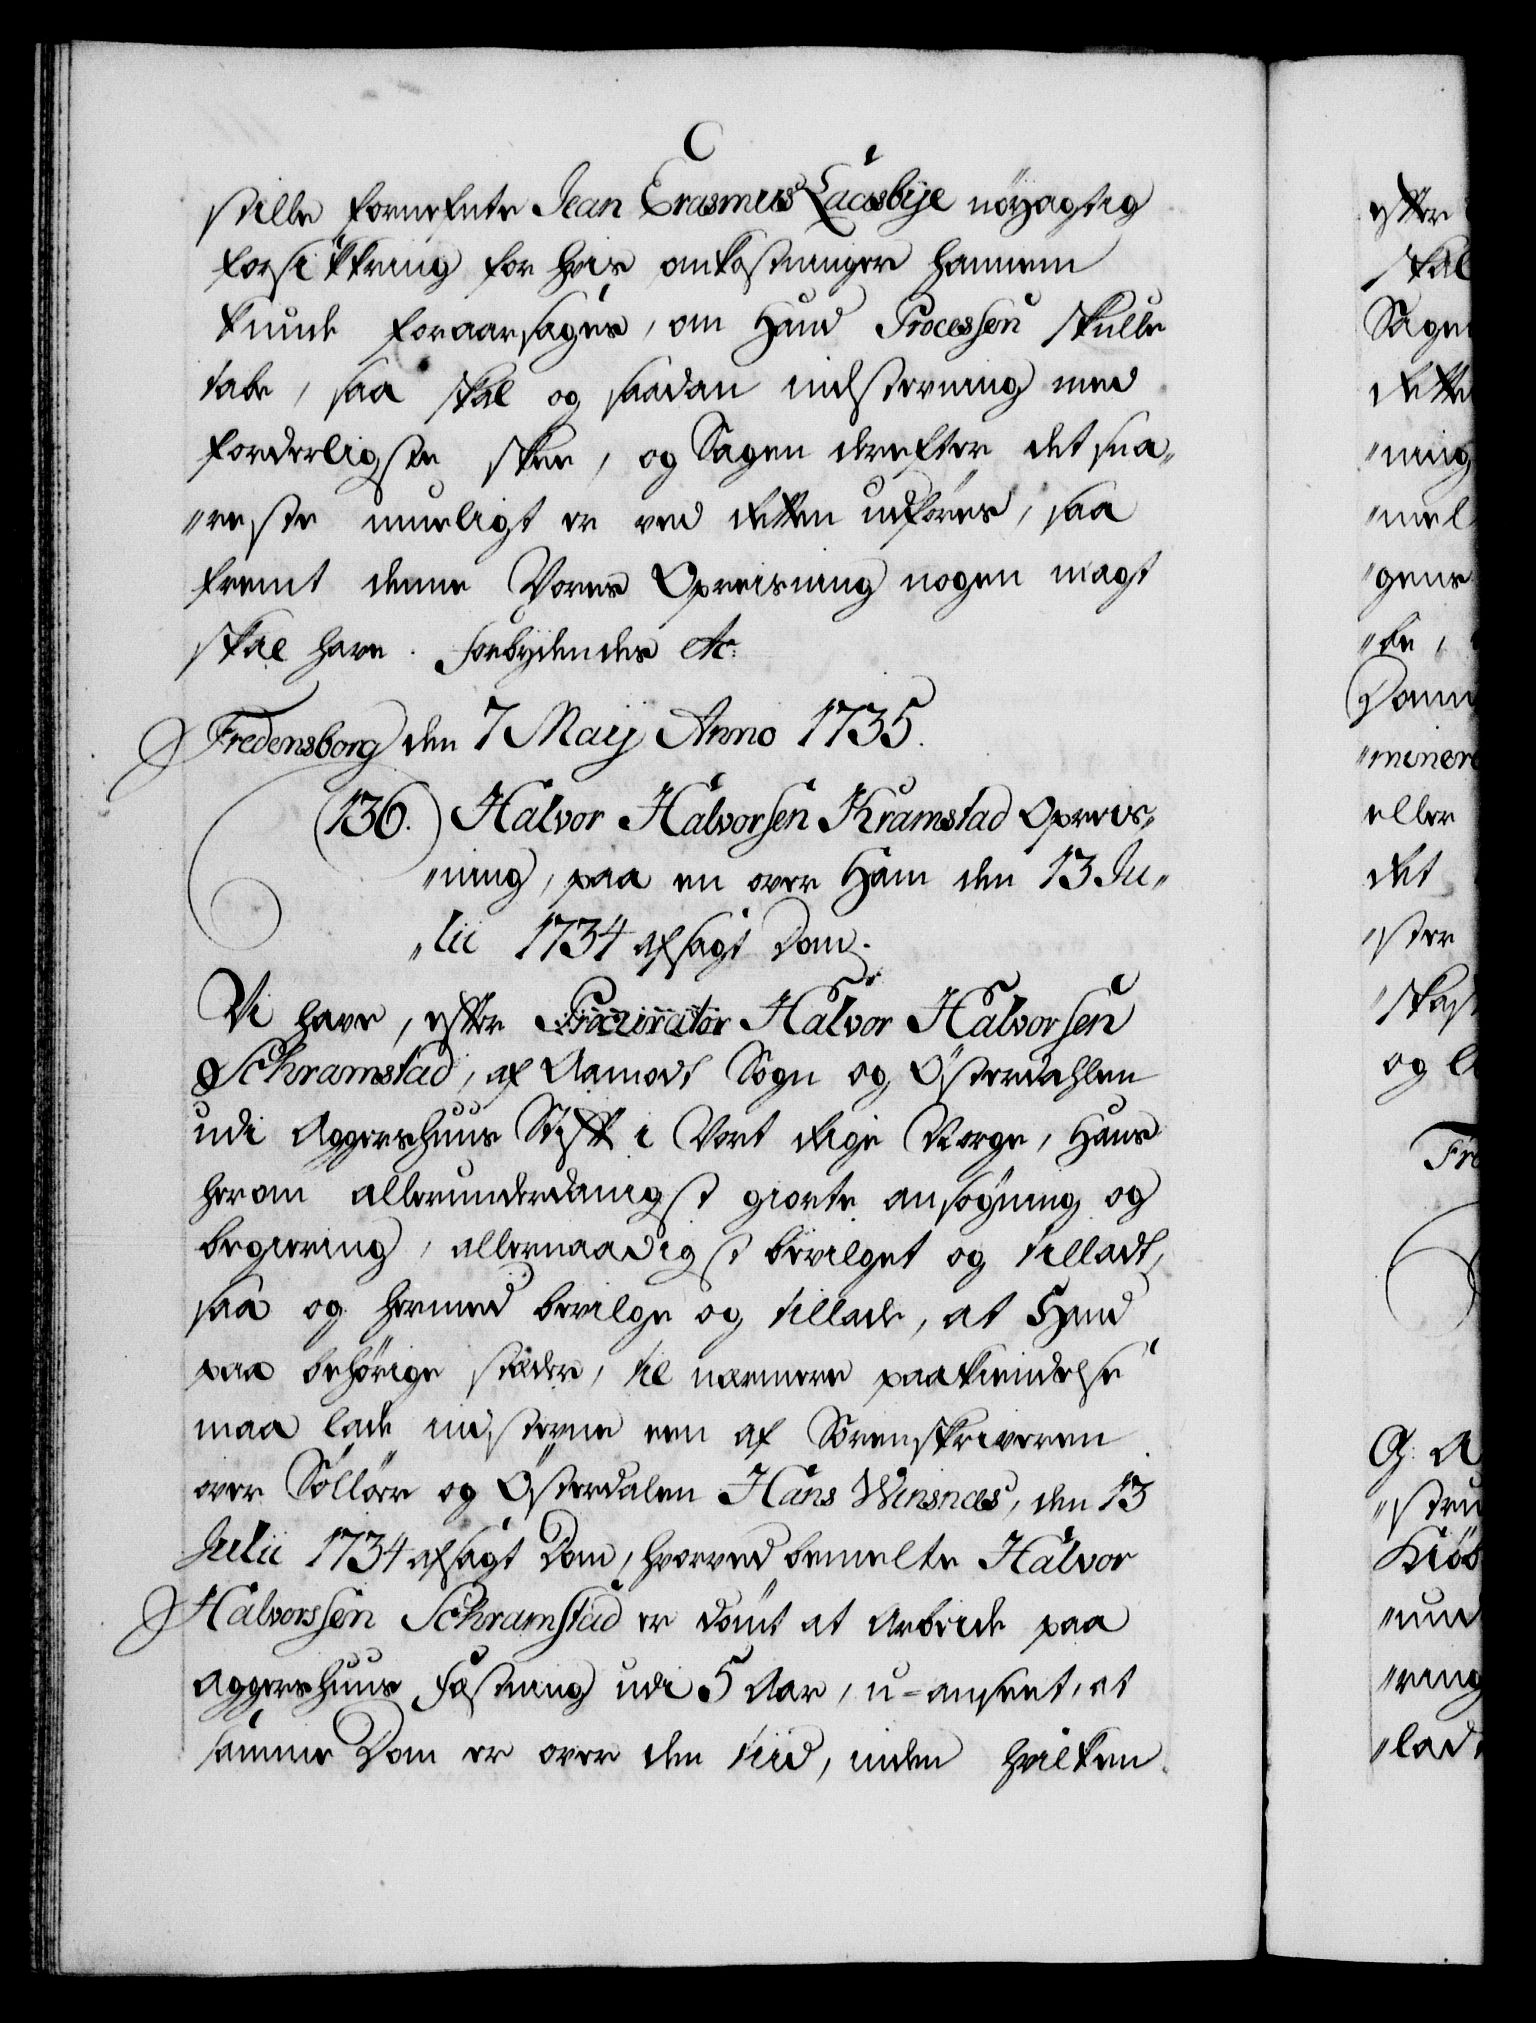 stille fornefnte Jean Erasmus Laasbÿe nöyagtig
forsikkring for hvis omkostninger hannem
kunde foraarsages, om Hand Processen skulle
tabe, saa skal og saadan indstevning med
forderligste skee, og Sagen derefter det sna„
„reste mueligt er ved Retten udføres, saa
fremt denne Vores Opreisning nogen magt
skal have. Forbydendes etc:
Fredensborg den 7 Maij Anno 1735.
(136.) Halvor Halvorsen Kramstad Opreis„
„ning, paa en over Ham den 13 Ju„
„lii 1734 afsagt Dom.
Vi have, efter Procurator Halvor Halvorsen
Schramstad, af Aamodt Sogn og Österdahlen
udi Aggershuus Stift i Vort Rige Norge, Hans
herom allerunderdanigst giorte ansøgning og
begiering, allernaadigst bevilget og tilladt,
saa og hermed bevilge og tillade, at Hand
paa behörige stæder, til nærmere paakiendelse
maa lade indstevne een af Sorenskriveren
over Sollöer og Österdalen Hans Winsnæs, den 13
Julii 1734 afsagt Dom, hvorved bemelte Halvor
Halvorssen Schramstad er dömt at Arbeide paa
Aggershuus Fæstning udi 5 Aar, u-anseet, at
samme Dom er over den tiid, inden hvilken
efter
skal
Sagen
Rette
„ning
„mel
„gens
„be,
Dom
„minere
eller
det
„ster
og
Fre
„stru
Kiöb
„ring
„lad